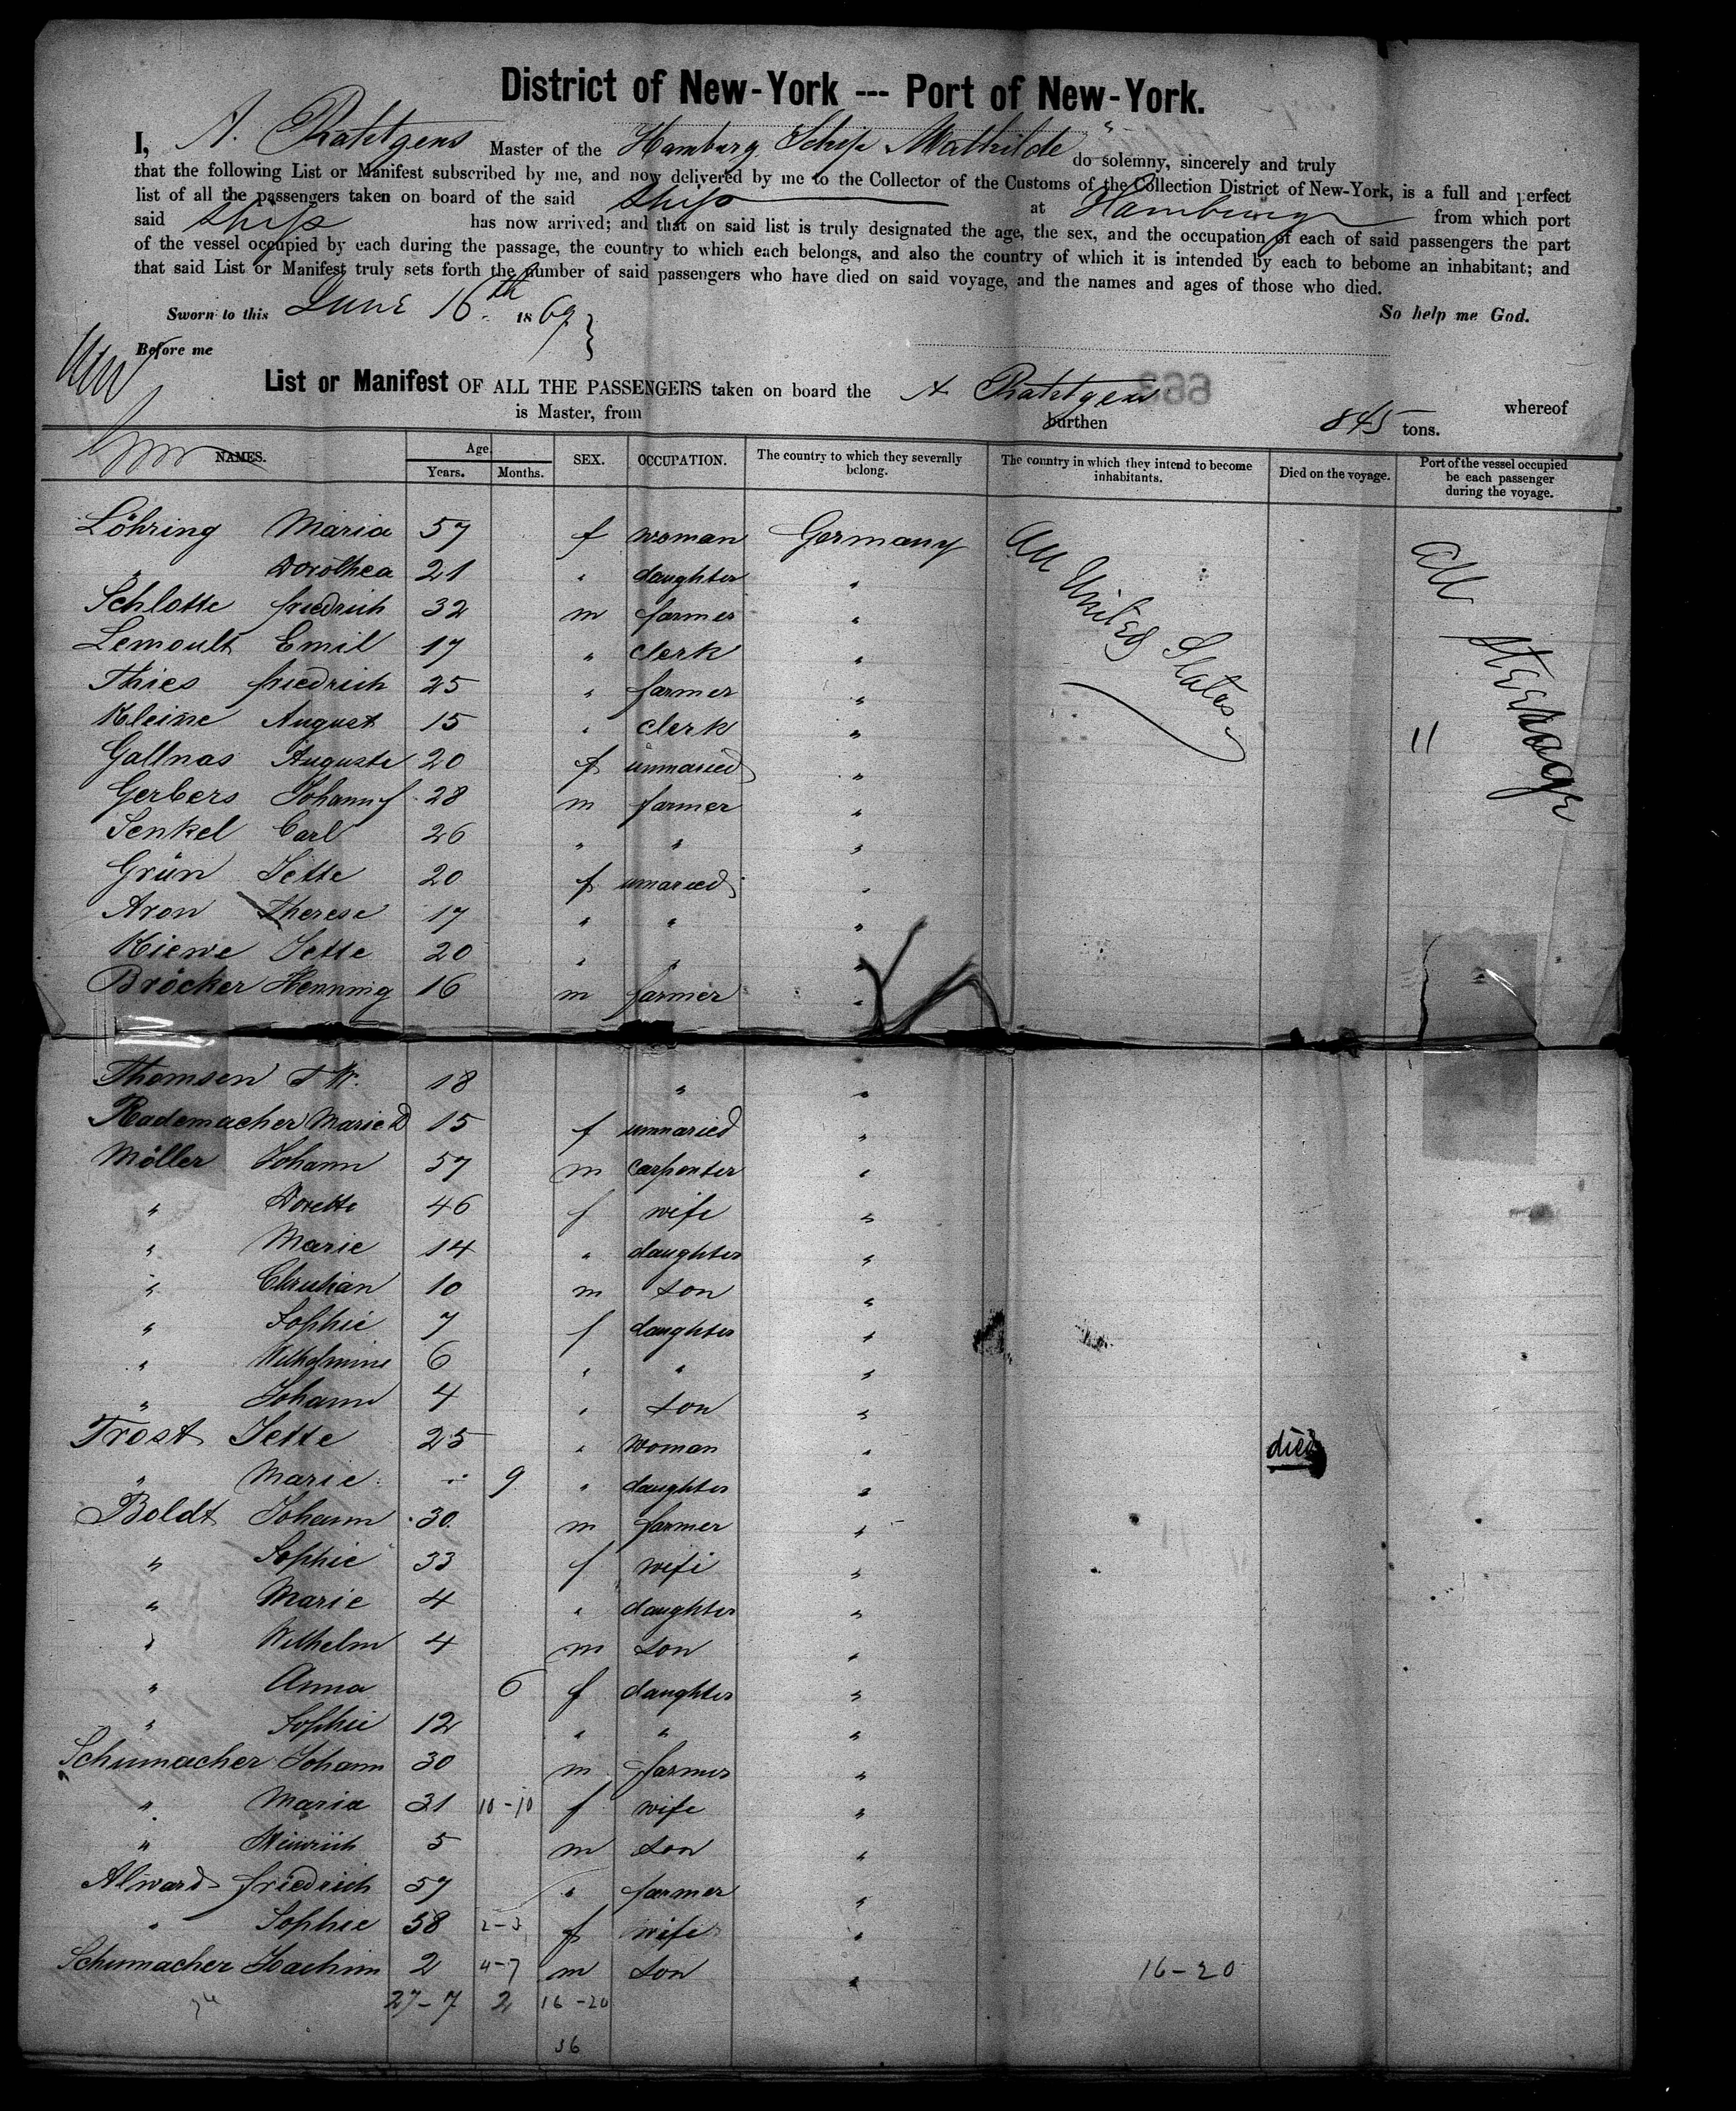 District of New-York --- Port of New-York.
I, A. Rahtgens Master of the Hamburg Schip Mathilde do solemny, sincerely and truly
that the following List or Manifest subscribed by me, and now delivered by me to the Collector of the Customs of the Collection District of New-York, is a full and perfect
list of all the passengers taken on board of the said Ship at Hamburg from which port
said Ship has now arrived; and that on said list is truly designated the age, the sex, and the occupation of each of said passengers the part
of the vessel occupied by each during the passage, the country to which each belongs, and also the country of which it is intended by each to bebome an inhabitant; and
that said List or Manifest truly sets forth the number of said passengers who have died on said voyage, and the names and ages of those who died.
Sworn to this June 16th 1869 } So help me God.
Before me
List or Manifest OF ALL THE PASSENGERS taken on board the A Rahtgens whereof
is Master, from burthen 845 tons.
NAMES. Age. Years. Months. SEX. OCCUPATION. The country to which they severally belong. The country in which they intend to become inhabitants. Died on the voyage. Port of the vessel occupied be each passenger during the voyage.
Löhring Maria 57 f woman Germany All United States All Steerage
" Dorothea 21 " daughter "
Schlotte friedrich 32 m farmer "
Lemoult Emil 17 " clerk "
Thies friedrich 25 " farmer "
Kleine August 15 " clerk " 11
Gallnas Auguste 20 f unmaried "
Gerbers Johann f 28 m farmer "
Senkel Carl 26 " " "
Grün Jette 20 f unmaried "
Aron Therese 17 " " "
Kiewe Jette 20 " " "
Bröcker Henning 16 m farmer "
Thomsen J W. 18 " "
Rademacher Marie D 15 f unmaried "
Möller Johann 57 m carpenter "
" Dorette 46 f wife "
" Marie 14 " daughter "
" Christian 10 m son "
" Sophie 7 f daughter "
" Wilhelmine 6 " " "
" Johann 4 " son "
Trost Jette 25 " woman " died
" Marie 9 " daughter "
Boldt Johann 30 m farmer "
" Sophie 33 f wife "
" Marie 4 " daughter "
" Wilhelm 4 m son "
" Anna 6 f daughter "
" Sophie 12 " " "
Schumacher Johann 30 m farmer "
" Maria 31 10-10 f wife "
" Heinrich 5 m son "
Alward friedrich 57 " farmer "
" Sophie 58 2-3 f wife "
Schumacher Joachim 2 4-7 m son " 16-20
27-7 2 16-20
36